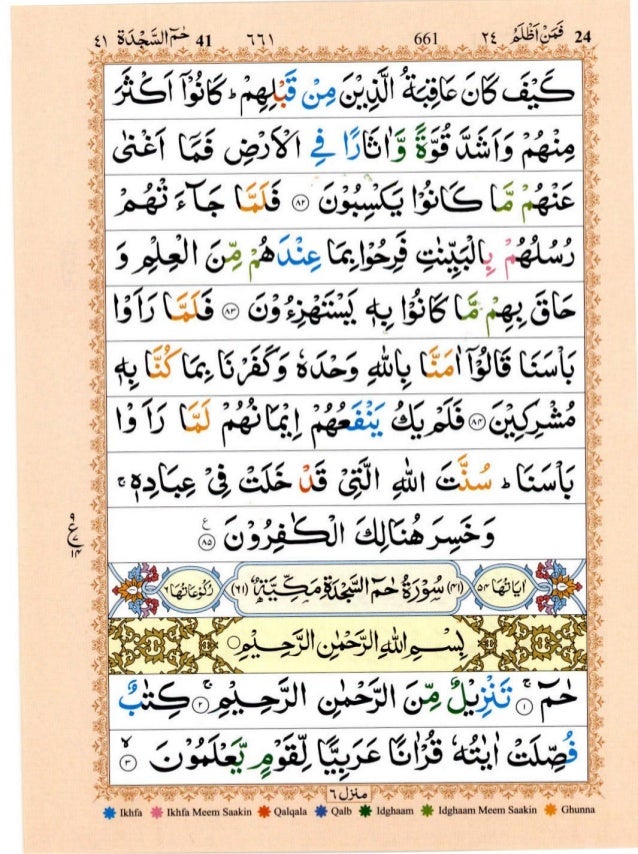 ٤١ حٰمٓ السَّجْدَة 41 ٦٦١ 661 ٢٤ فَمَنْ اَظْلَمُ 24
كَيْفَ كَانَ عَاقِبَةُ الَّذِيْنَ مِنْ قَبْلِهِمْ ؕ كَانُوْۤا اَكْثَرَ
مِنْهُمْ وَاَشَدَّ قُوَّةً وَّاٰثَارًا فِي الْاَرْضِ فَمَاۤ اَغْنٰى
عَنْهُمْ مَّا كَانُوْا يَكْسِبُوْنَ ۝۸۲ فَلَمَّا جَآءَتْهُمْ
رُسُلُهُمْ بِالْبَيِّنٰتِ فَرِحُوْا بِمَا عِنْدَهُمْ مِّنَ الْعِلْمِ وَ
حَاقَ بِهِمْ مَّا كَانُوْا بِهٖ يَسْتَهْزِءُوْنَ ۝۸۳ فَلَمَّا رَاَوْا
بَاْسَنَا قَالُوْۤا اٰمَنَّا بِاللّٰهِ وَحْدَهٗ وَكَفَرْنَا بِمَا كُنَّا بِهٖ
مُشْرِكِيْنَ ۝۸۴ فَلَمْ يَكُ يَنْفَعُهُمْ اِيْمَانُهُمْ لَمَّا رَاَوْا
بَاْسَنَا ؕ سُنَّتَ اللّٰهِ الَّتِيْ قَدْ خَلَتْ فِيْ عِبَادِهٖ ۚ
وَخَسِرَ هُنَالِكَ الْكٰفِرُوْنَ ۝۸۵ ع
۹
ع ۷
۱۴
اٰيَاتُهَا ۵۴ (۴۱) سُوْرَةُ حٰمٓ السَّجْدَةِ مَكِّيَّةٌ (۶۱) رُكُوْعَاتُهَا ۶
بِسْمِ اللّٰهِ الرَّحْمٰنِ الرَّحِيْمِ ۝
حٰمٓ ۝۱ۚ تَنْزِيْلٌ مِّنَ الرَّحْمٰنِ الرَّحِيْمِ ۝۲ۚ كِتٰبٌ
فُصِّلَتْ اٰيٰتُهٗ قُرْاٰنًا عَرَبِيًّا لِّقَوْمٍ يَّعْلَمُوْنَ ۝۳ۙ
منزل ٦
Ikhfa Ikhfa Meem Saakin Qalqala Qalb Idghaam Idghaam Meem Saakin Ghunna